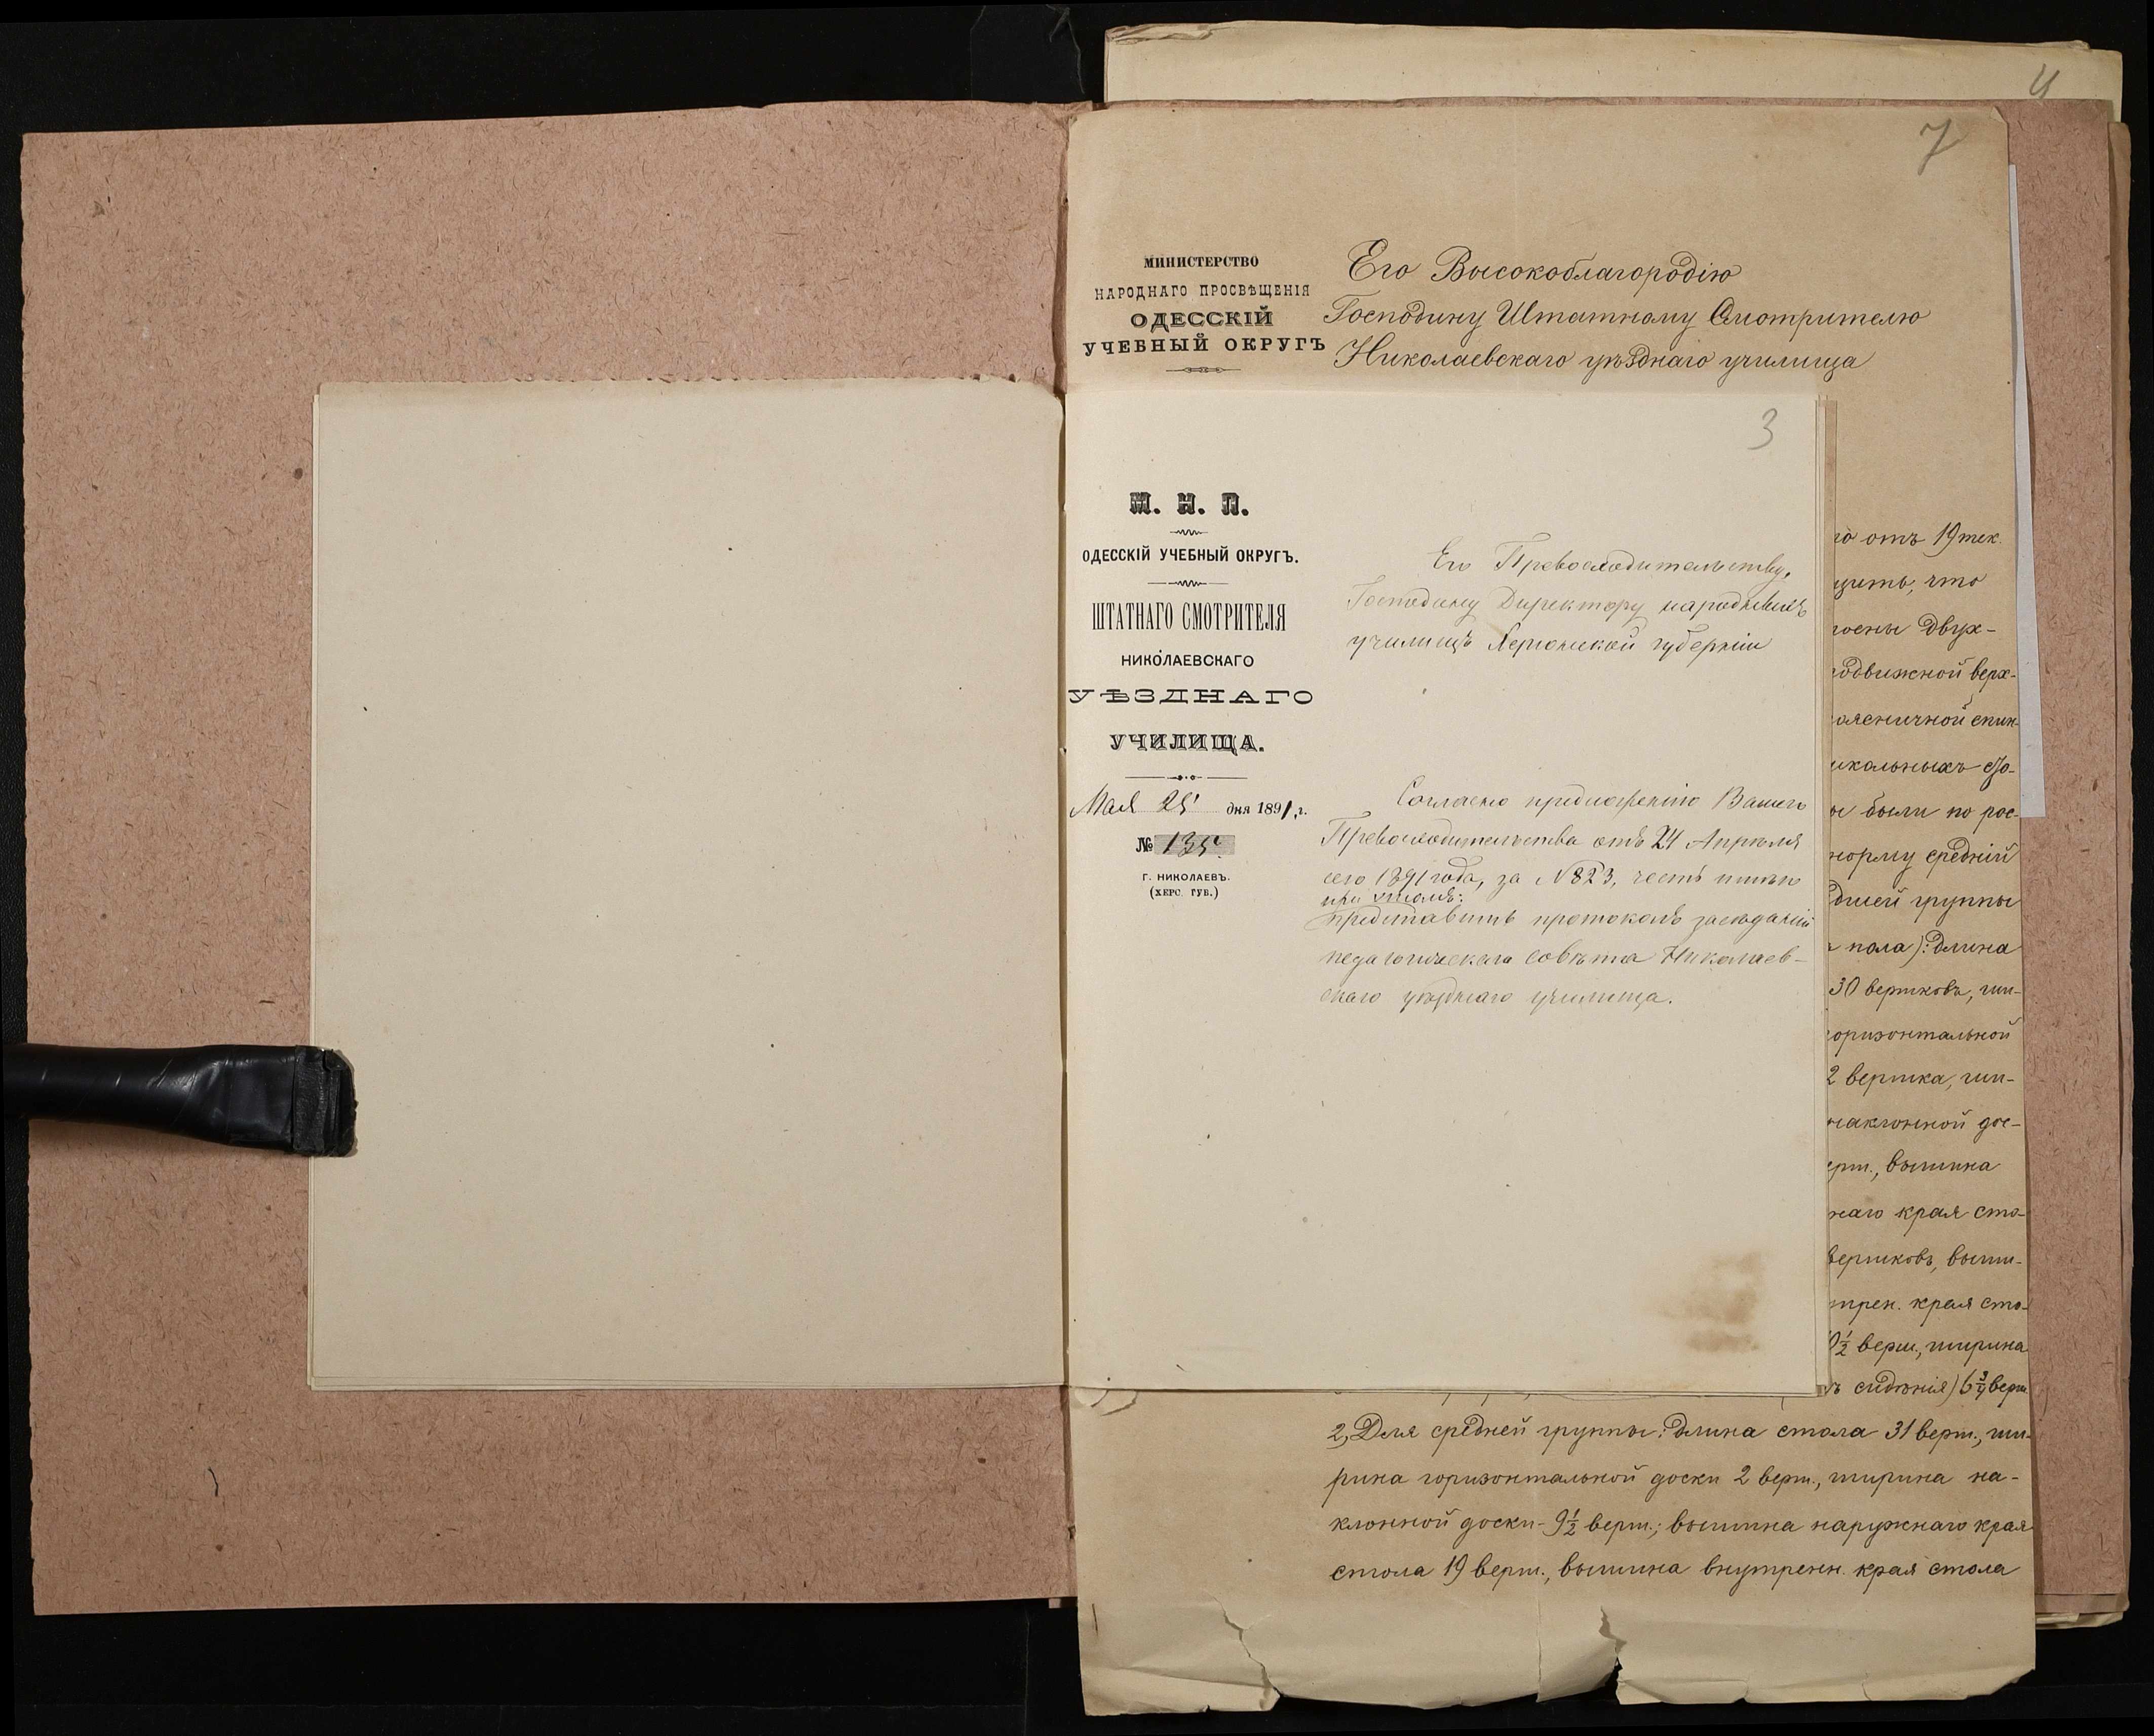 4
7
МИНИСТЕРСТВО
НАРОДНАГО ПРОСВѢЩЕНІЯ
ОДЕССКІЙ
УЧЕБНЫЙ ОКРУГЪ
Его Высокоблагородію
Господину Штатному Смотрителю
Николаевскаго уѣзднаго училища
3
М. Н. П.
ОДЕССКІЙ УЧЕБНЫЙ ОКРУГЪ.
ШТАТНАГО СМОТРИТЕЛЯ
НИКОЛАЕВСКАГО
УѢЗДНАГО
УЧИЛИЩА.
Мая 25 дня 1891 г.
№ 135.
Г. НИКОЛАЕВЪ.
(ХЕРС. ГУБ.)
Его Превосходительству,
Господину Директору народныхъ
училищъ Херсонской губерніи
Согласно предложенію Вашего
Превосходительства отъ 24 Апрѣля
сего 1891 года, за №823, честь имѣю
при этомъ:
представить протоколъ засѣданій
педагогическаго совѣта Николаев-
скаго уѣзднаго училища.
го отъ 19 тек.
что
двух-
подвижной верх-
спин-
были по рос-
норму средній
группы
пола): длина
30 вершковъ, ши-
горизонтальной
2 вершка, ши-
наклонной дос-
верш., вышина
края сто-
вершковъ, выши-
края сто-
½ верш., ширина
сидѣнія) 6¾ верш
2, Для средней группы: длина стола 31 верш., ши-
рина горизонтальной доски 2 верш., ширина на-
клонной доски - 9½ верш.; вышина наружнаго края
стола 19 верш., вышина внутренн. края стола